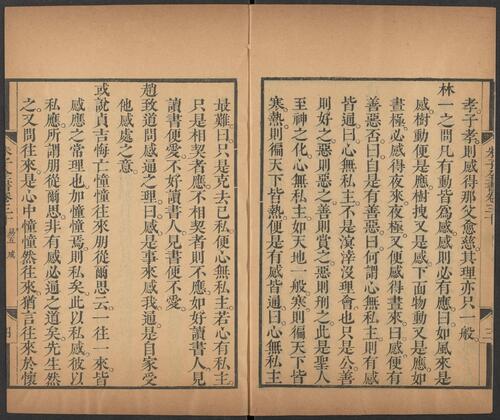 孝子孝則感得那父愈慈其理亦只一般
林一之問凡有動皆為感感則必有應曰如風來是
感樹動便是應樹拽又是感下面物動又是應如
晝極必感得夜來夜極又便感得晝來曰感便有
善惡否曰自是有善惡曰何謂心無私主則有感
皆通曰心無私主不是溟涬沒理會也只是公善
則好之惡則惡之善則賞之惡則刑之此是聖人
至神之化心無私主如天地一般寒則徧天下皆
寒熱則徧天下皆熱便是有感皆通曰心無私主
三
最難曰只是克去己私便心無私主若心有私主
只是相契者應不相契者則不應如好讀書人見
讀書便愛不好讀書人見書便不愛
趙致道問感通之理曰感是事來感我通是自家受
他感處之意
或說貞吉悔亡憧憧往來朋從爾思云一往一來皆
感應之常理也加憧憧焉則私矣此以私感彼以
私應所謂朋從爾思非有感必通之道矣先生然
之又問往來是心中憧憧然往來猶言往來於懷
易五 咸
四